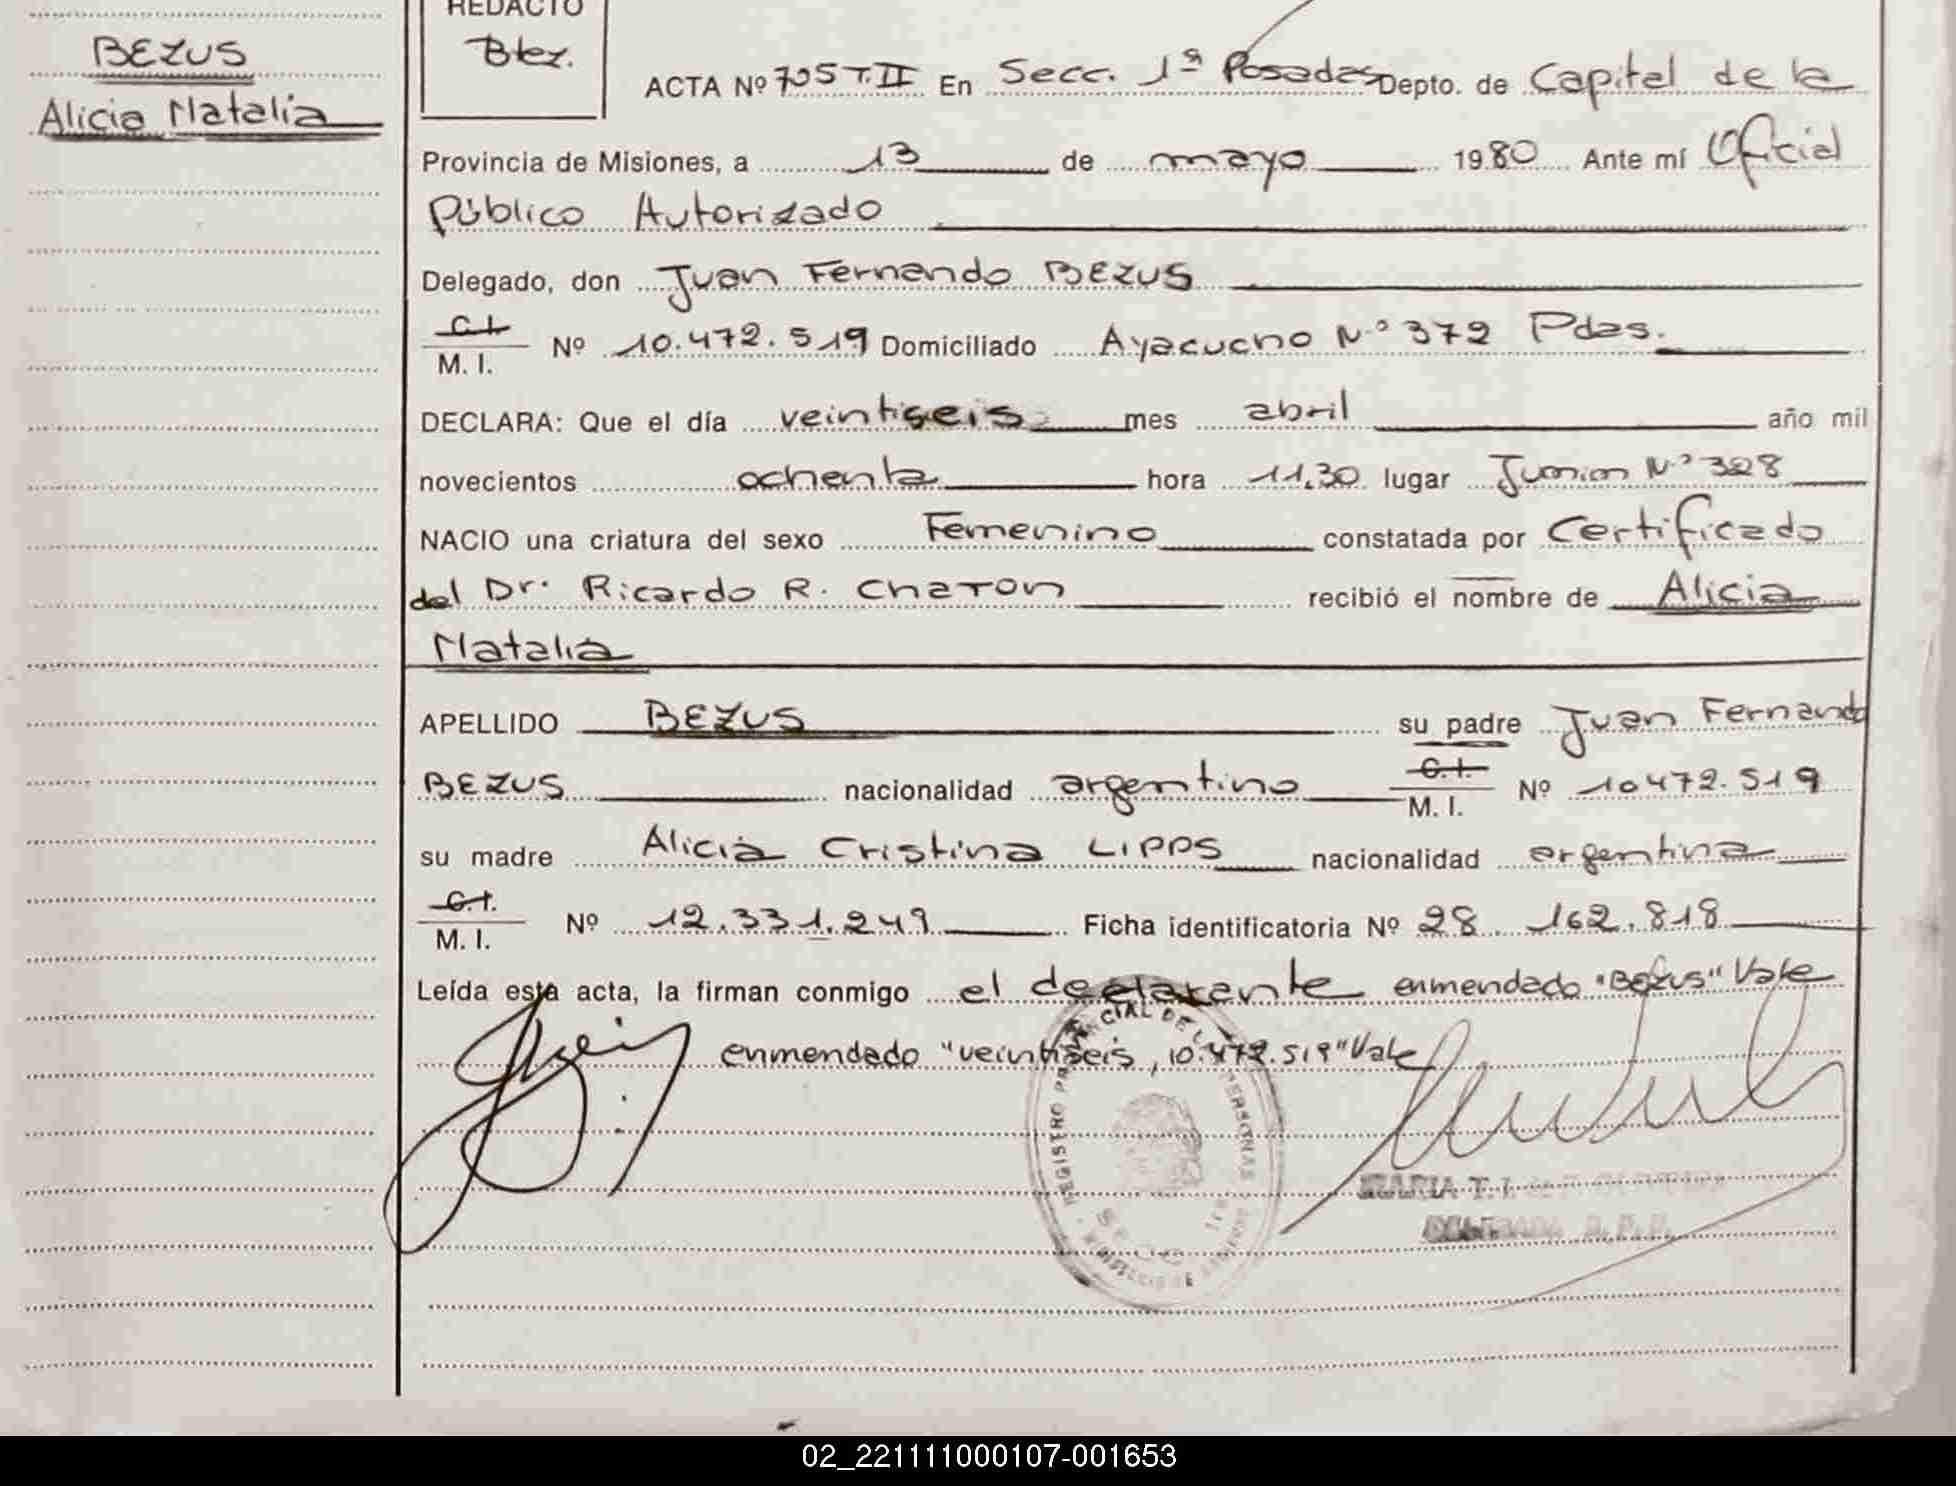 REDACTO
BEZUS
Btez.
ACTA Nº 705 T.II En Secc. 1ª Posadas Depto. de Capital de la
Alicia Natalia
Provincia de Misiones, a 13 de mayo 1980 Ante mí Oficial
Público Autorizado
Delegado, don Juan Fernando BEZUS
C.I.
M. I. Nº 10.472.519 Domiciliado Ayacucho N.º 372 Pdas.
DECLARA: Que el día veintiseis mes abril año mil
novecientos ochenta hora 11,30 lugar Junin N.º 328
NACIO una criatura del sexo Femenino constatada por Certificado
del Dr. Ricardo R. Chaton recibió el nombre de Alicia
Natalia
APELLIDO BEZUS su padre Juan Fernando
BEZUS nacionalidad argentino C.I. M. I. Nº 10472.519
su madre Alicia Cristina LIPPS nacionalidad argentina
C.I.
M. I. Nº 12.331.249 Ficha identificatoria Nº 28.162.818
Leída esta acta, la firman conmigo el declarante enmendado "BEZUS" Vale
enmendado "veintiseis, 10.472.519" Vale
REGISTRO PROVINCIAL DE LAS PERSONAS
MINISTERIO DE GOBIERNO
SECC 1ra
MARIA T. I.
DELEGADA R. P. P.
02_221111000107-001653